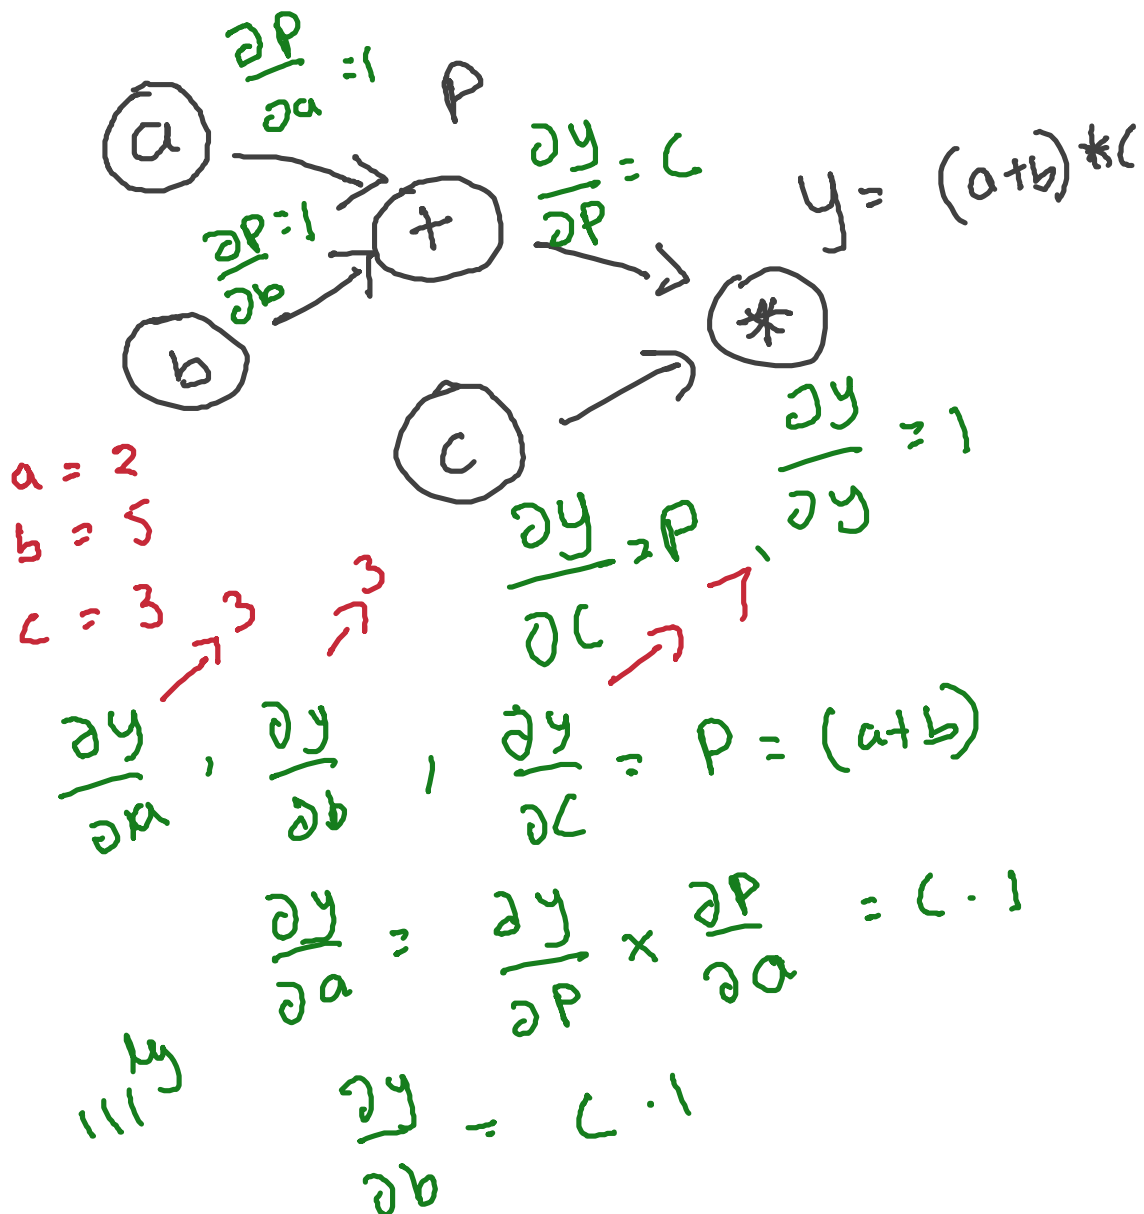 ∂P/∂a = 1
P
a
∂y/∂P = C
y = (a+b)*C
∂P/∂b = 1
+
*
b
c
∂y/∂y = 1
a = 2
b = 5
c = 3
∂y/∂C = P
3
3
7
∂y/∂a , ∂y/∂b , ∂y/∂C = P = (a+b)
∂y/∂a = ∂y/∂P × ∂P/∂a = C · 1
lllly
∂y/∂b = C · 1